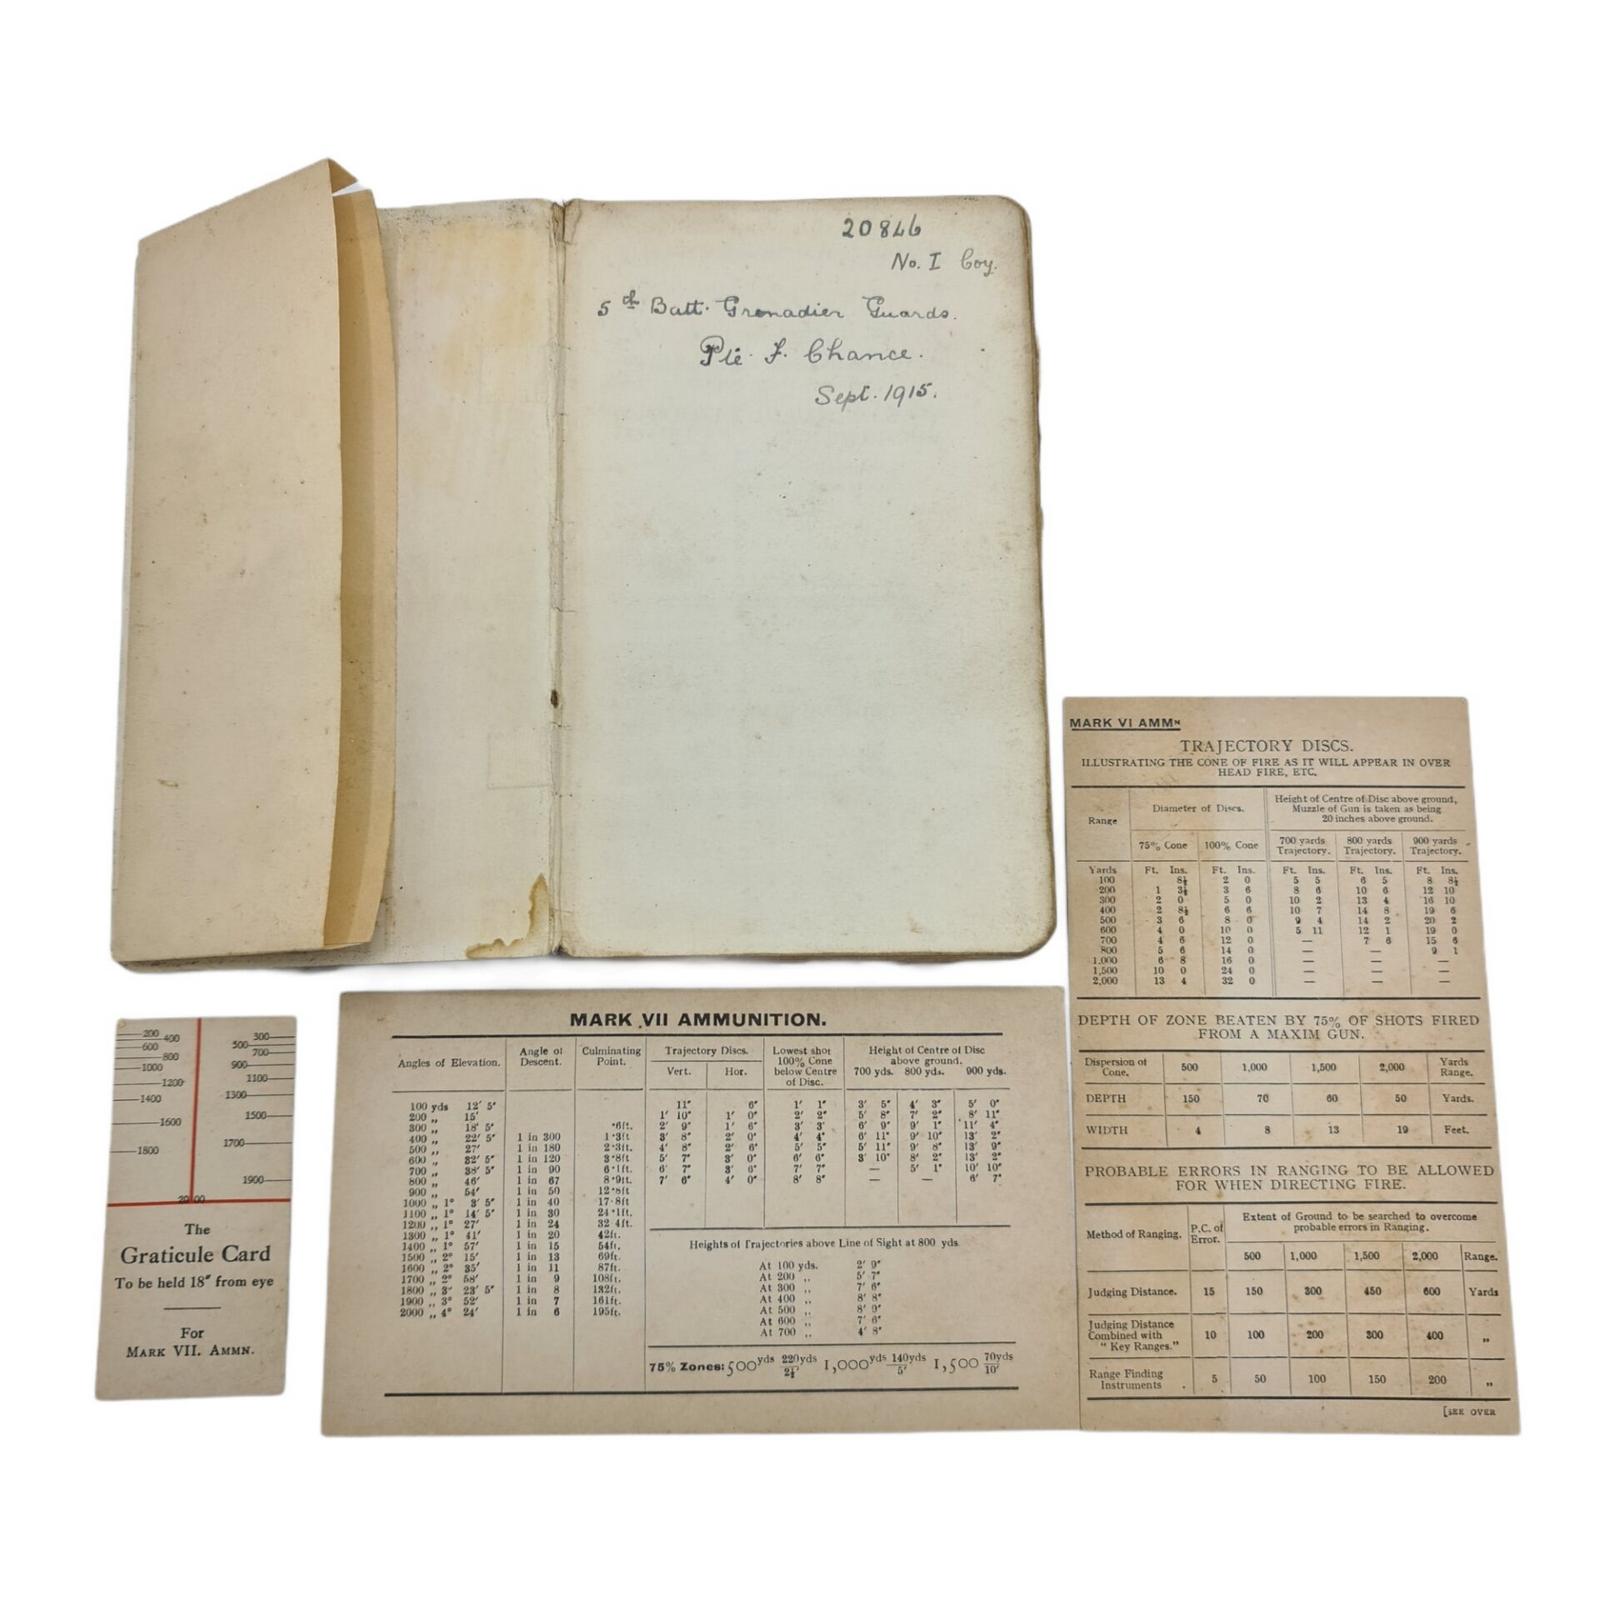 20846
No. I Coy.
5th Batt. Grenadier Guards.
Pte. F. Chance.
Sept. 1915.
MARK VI AMMN
TRAJECTORY DISCS.
ILLUSTRATING THE CONE OF FIRE AS IT WILL APPEAR IN OVER
HEAD FIRE, ETC.
Range
Diameter of Discs.
Height of Centre of Disc above ground,
Muzzle of Gun is taken as being
20 inches above ground.
75% Cone 100% Cone 700 yards Trajectory. 800 yards Trajectory. 900 yards Trajectory.
Yards Ft. Ins. Ft. Ins. Ft. Ins. Ft. Ins. Ft. Ins.
100 8½ 2 0 5 5 6 5 8 8½
200 1 3½ 3 6 8 6 10 6 12 10
300 2 0 5 0 10 2 13 4 16 10
400 2 8½ 6 6 10 7 14 8 19 6
500 3 6 8 0 9 4 14 2 20 2
600 4 0 10 0 5 11 12 1 19 0
700 4 6 12 0 — 7 6 15 6
800 5 6 14 0 — — 9 1
1,000 6 8 16 0 — — —
1,500 10 0 24 0 — — —
2,000 13 4 32 0 — — —
DEPTH OF ZONE BEATEN BY 75% OF SHOTS FIRED
FROM A MAXIM GUN.
Dispersion of Cone. 500 1,000 1,500 2,000 Yards Range.
DEPTH 150 70 60 50 Yards.
WIDTH 4 8 13 19 Feet.
PROBABLE ERRORS IN RANGING TO BE ALLOWED
FOR WHEN DIRECTING FIRE.
Method of Ranging. P.C. of Error. Extent of Ground to be searched to overcome
probable errors in Ranging.
500 1,000 1,500 2,000 Range.
Judging Distance. 15 150 300 450 600 Yards
Judging Distance Combined with "Key Ranges." 10 100 200 300 400 „
Range Finding Instruments . 5 50 100 150 200 „
[SEE OVER
MARK VII AMMUNITION.
Angles of Elevation. Angle of Descent. Culminating Point. Trajectory Discs. Vert. Hor. Lowest shot 100% Cone below Centre of Disc. Height of Centre of Disc above ground. 700 yds. 800 yds. 900 yds.
100 yds 12′ 5″ 11″ 6″ 1′ 1″ 3′ 5″ 4′ 3″ 5′ 0″
200 „ 15′ 1′ 10″ 1′ 0″ 2′ 2″ 5′ 8″ 7′ 2″ 8′ 11″
300 „ 18′ 5″ ·6ft. 2′ 9″ 1′ 6″ 3′ 3″ 6′ 9″ 9′ 1″ 11′ 4″
400 „ 22′ 5″ 1 in 300 1·3ft. 3′ 8″ 2′ 0″ 4′ 4″ 6′ 11″ 9′ 10″ 13′ 2″
500 „ 27′ 1 in 180 2·3ft. 4′ 8″ 2′ 6″ 5′ 5″ 5′ 11″ 9′ 8″ 13′ 9″
600 „ 32′ 5″ 1 in 120 3·8ft. 5′ 7″ 3′ 0″ 6′ 6″ 3′ 10″ 8′ 2″ 13′ 2″
700 „ 38′ 5″ 1 in 90 6·1ft. 6′ 7″ 3′ 6″ 7′ 7″ — 5′ 1″ 10′ 10″
800 „ 46′ 1 in 67 8·9ft. 7′ 6″ 4′ 0″ 8′ 8″ — — 6′ 7″
900 „ 54′ 1 in 50 12·8ft
1000 „ 1° 3′ 5″ 1 in 40 17·8ft
1100 „ 1° 14′ 5″ 1 in 30 24·1ft.
1200 „ 1° 27′ 1 in 24 32 4ft.
1300 „ 1° 41′ 1 in 20 42ft.
1400 „ 1° 57′ 1 in 15 54ft.
1500 „ 2° 15′ 1 in 13 69ft.
1600 „ 2° 35′ 1 in 11 87ft.
1700 „ 2° 58′ 1 in 9 108ft.
1800 „ 3° 23′ 5″ 1 in 8 132ft.
1900 „ 3° 52′ 1 in 7 161ft.
2000 „ 4° 24′ 1 in 6 195ft.
Heights of Trajectories above Line of Sight at 800 yds.
At 100 yds. 2′ 9″
At 200 „ 5′ 7″
At 300 „ 7′ 6″
At 400 „ 8′ 8″
At 500 „ 8′ 9″
At 600 „ 7′ 6″
At 700 „ 4′ 8″
75% Zones: 500yds 220yds/2½′ 1,000yds 140yds/5′ 1,500 70yds/10′
200 400 300
600 500
800 700
1000 900
1200 1100
1400 1300
1600 1500
1800 1700
1900
2000
The
Graticule Card
To be held 18″ from eye
For
MARK VII. AMMN.